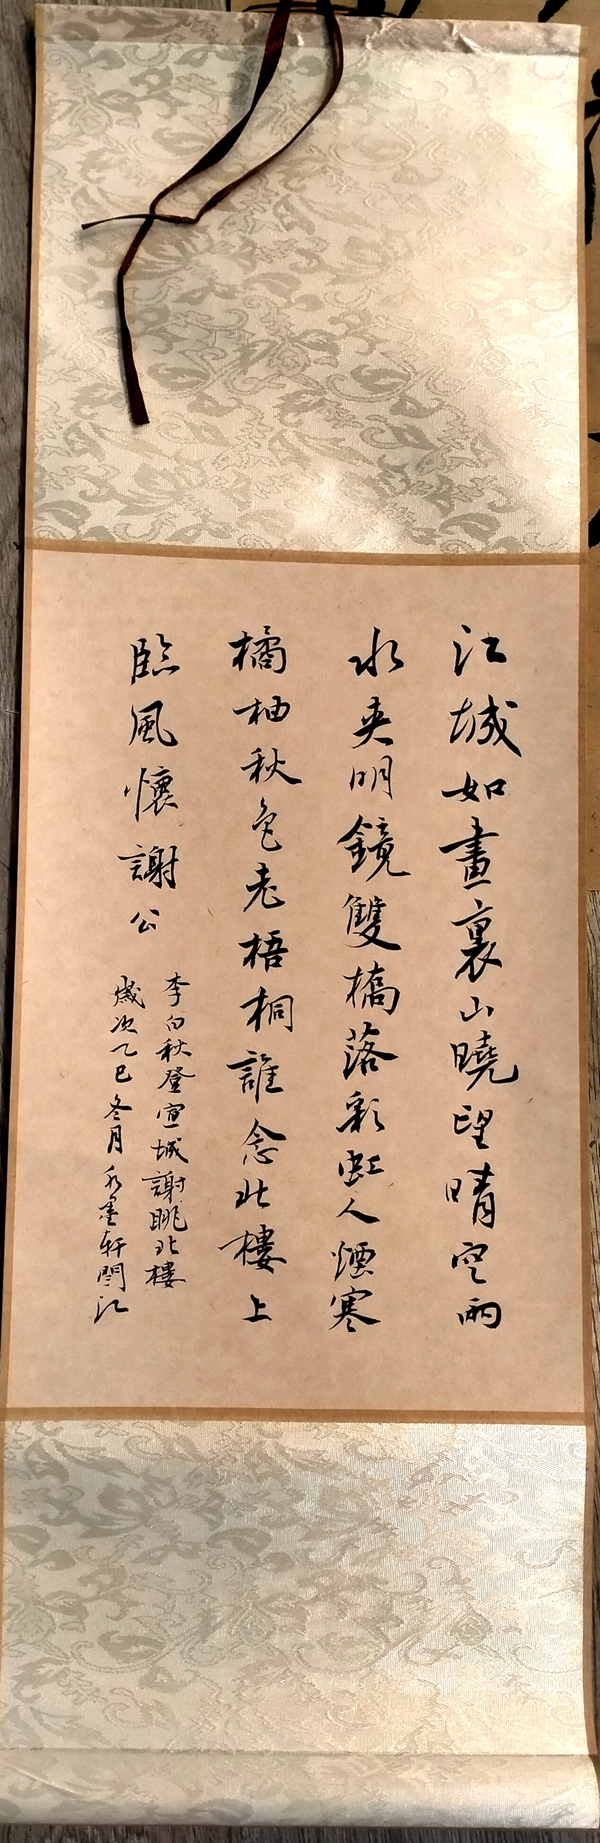 江城如畫裏山曉望晴空兩
水夾明鏡雙橋落彩虹人煙寒
橘柚秋色老梧桐誰念北樓上
臨風懷謝公
李白秋登宣城謝眺北樓
歲次乙巳冬月水墨軒閆江